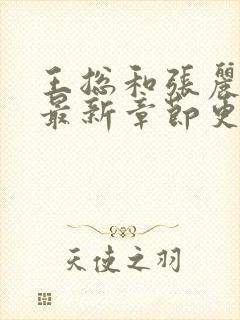 王総和張麗
最新章節史
天使之羽